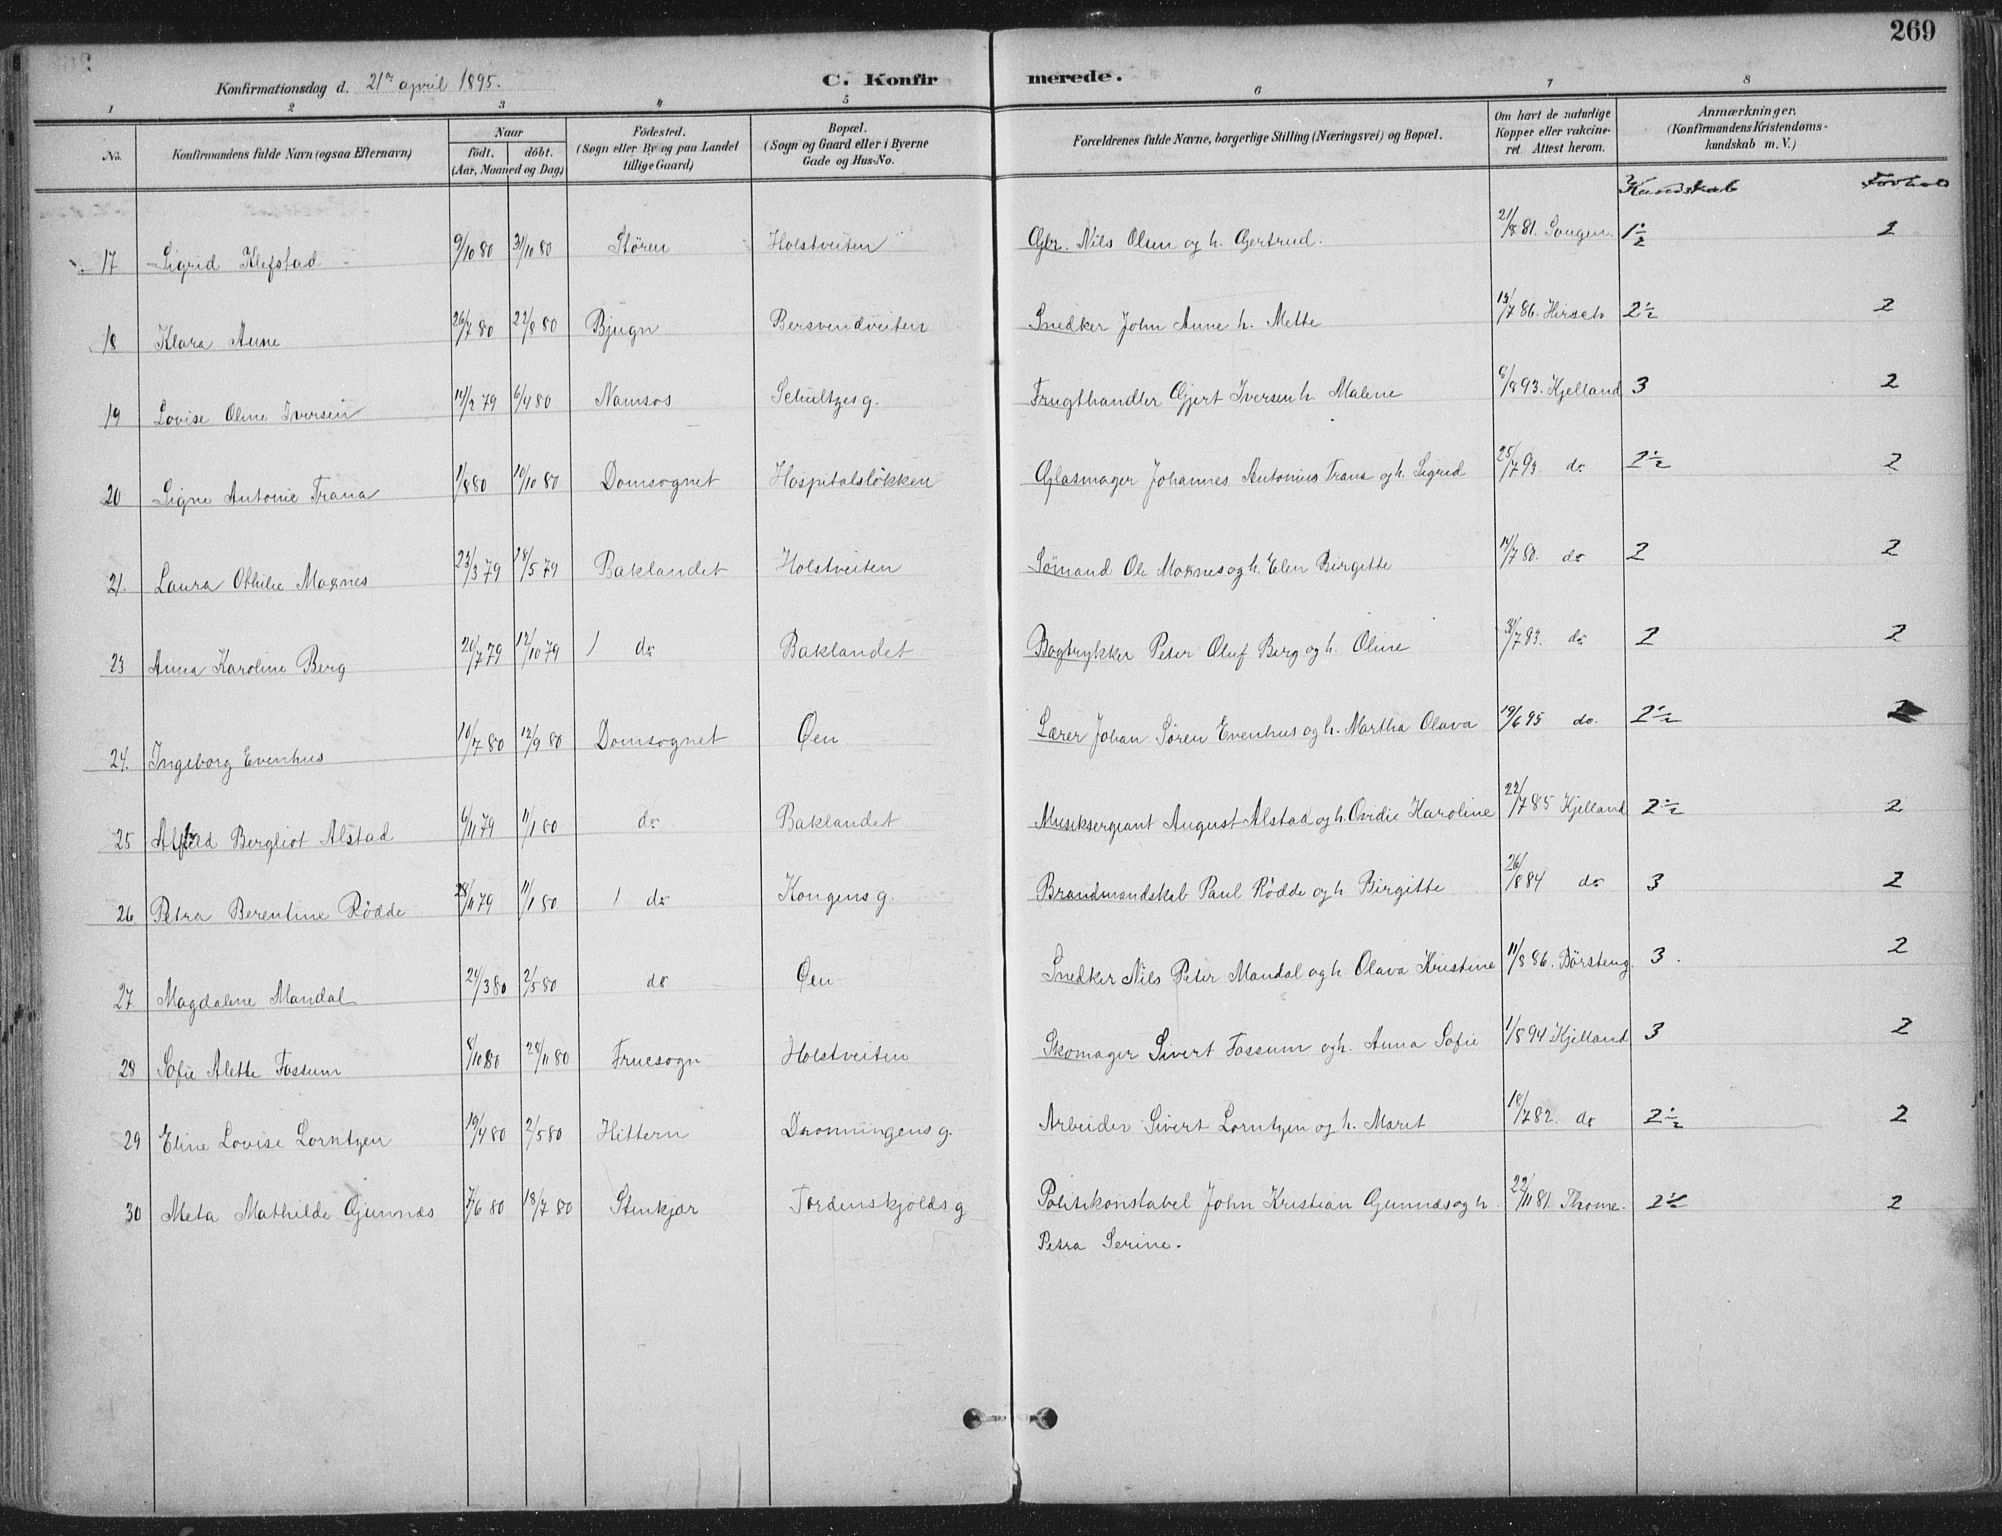 269
Konfirmationsdag d. 21de april 1895.
C. Konfir merede.
1 2 3 4 5 6 7 8
No. Konfirmandens fulde Navn (ogsaa Efternavn) Naar födt. döbt. (Aar, Maaned og Dag) Födested. (Sogn eller By og paa Landet tillige Gaard) Bopæl. (Sogn og Gaard eller i Byerne Gade og Hus-No. Forældrenes fulde Navne, borgerlige Stilling (Næringsvei) og Bopæl. Om havt de naturlige Kopper eller vakcineret. Attest herom. Anmærkninger. (Konfirmandens Kristendomskundskab m. V.)
Kundskab Forhold
17 Sigrid Klefstad 9/10 80 31/10 80 Stören Holstveiten Gbr. Nils Olsen og h. Gjertrud. 21/8 81. 1 1/2 1
18 Klara Aune 26/7 80 22/8 80 Bjugn Bersvendveiten Snedker John Aune h. Mette 13/7 86. Hirsch 2 1/2 2
19 Lovise Oline Iversen 14/2 79 6/4 80 Namsos Schultzes g. Frugthandler Gjert Iversen h. Malene 6/8 93. Kjelland 3 2
20 Signe Antonie Trana 1/8 80 10/10 80 Domsognet Hospitalslökken Glasmager Johannes Antonius Trana og h. Sigrid 25/7 93. do 2 1/2 2
21. Laura Othilie Moxnes 23/3 79 18/5 79 Baklandet Holstveiten Sömand Ole Moxnes og h. Elen Birgitte 12/7 80. do 2 2
23 Anna Karoline Berg 20/7 79 12/10 79 do Baklandet Bogtrykker Peter Oluf Berg og h. Oline 31/7 83. do 2 2
24. Ingeborg Evenhus 10/7 80 12/9 80 Domsognet Öen Lærer Johan Sören Evenhus og h. Martha Olava 19/6 95 do. 2 1/2 2
25 Alfhild Bergliot Alstad 6/11 79 11/1 80 do Baklandet Musiksergeant August Alstad og h. Ovidie Karoline 22/7 85 Kjelland 2 1/2 2
26 Petra Berentine Rödde 28/11 79 11/1 80 do Kongens g. Brandmandskab Paul Rödde og h. Birgitte 26/8 84 do 3 2
27 Magdalene Mandal 24/3 80 2/5 80 do Öen Snedker Nils Peter Mandal og h. Olava Kristine 11/8 86. Börsteng. 3. 2
28 Sofie Alette Fossum 8/10 80 28/11 80 Fruesogn Holstveiten Skomager Sivert Fossum og h. Anna Sofie 1/8 94 Kjelland 3 2
29 Eline Lovise Lorntzen 19/4 80 2/5 80 Hittern Dronningens g. Arbeider Sivert Lorntzen og h. Marit 18/7 82. do 2 1/2 2
30 Meta Mathilde Gjunnæs 7/6 80 18/7 80 Stenkjær Tordenskjolds g Politikonstabel John Kristian Gjunnæs og h. 22/11 81. Thome. 2 1/2 2
Petra Serine.